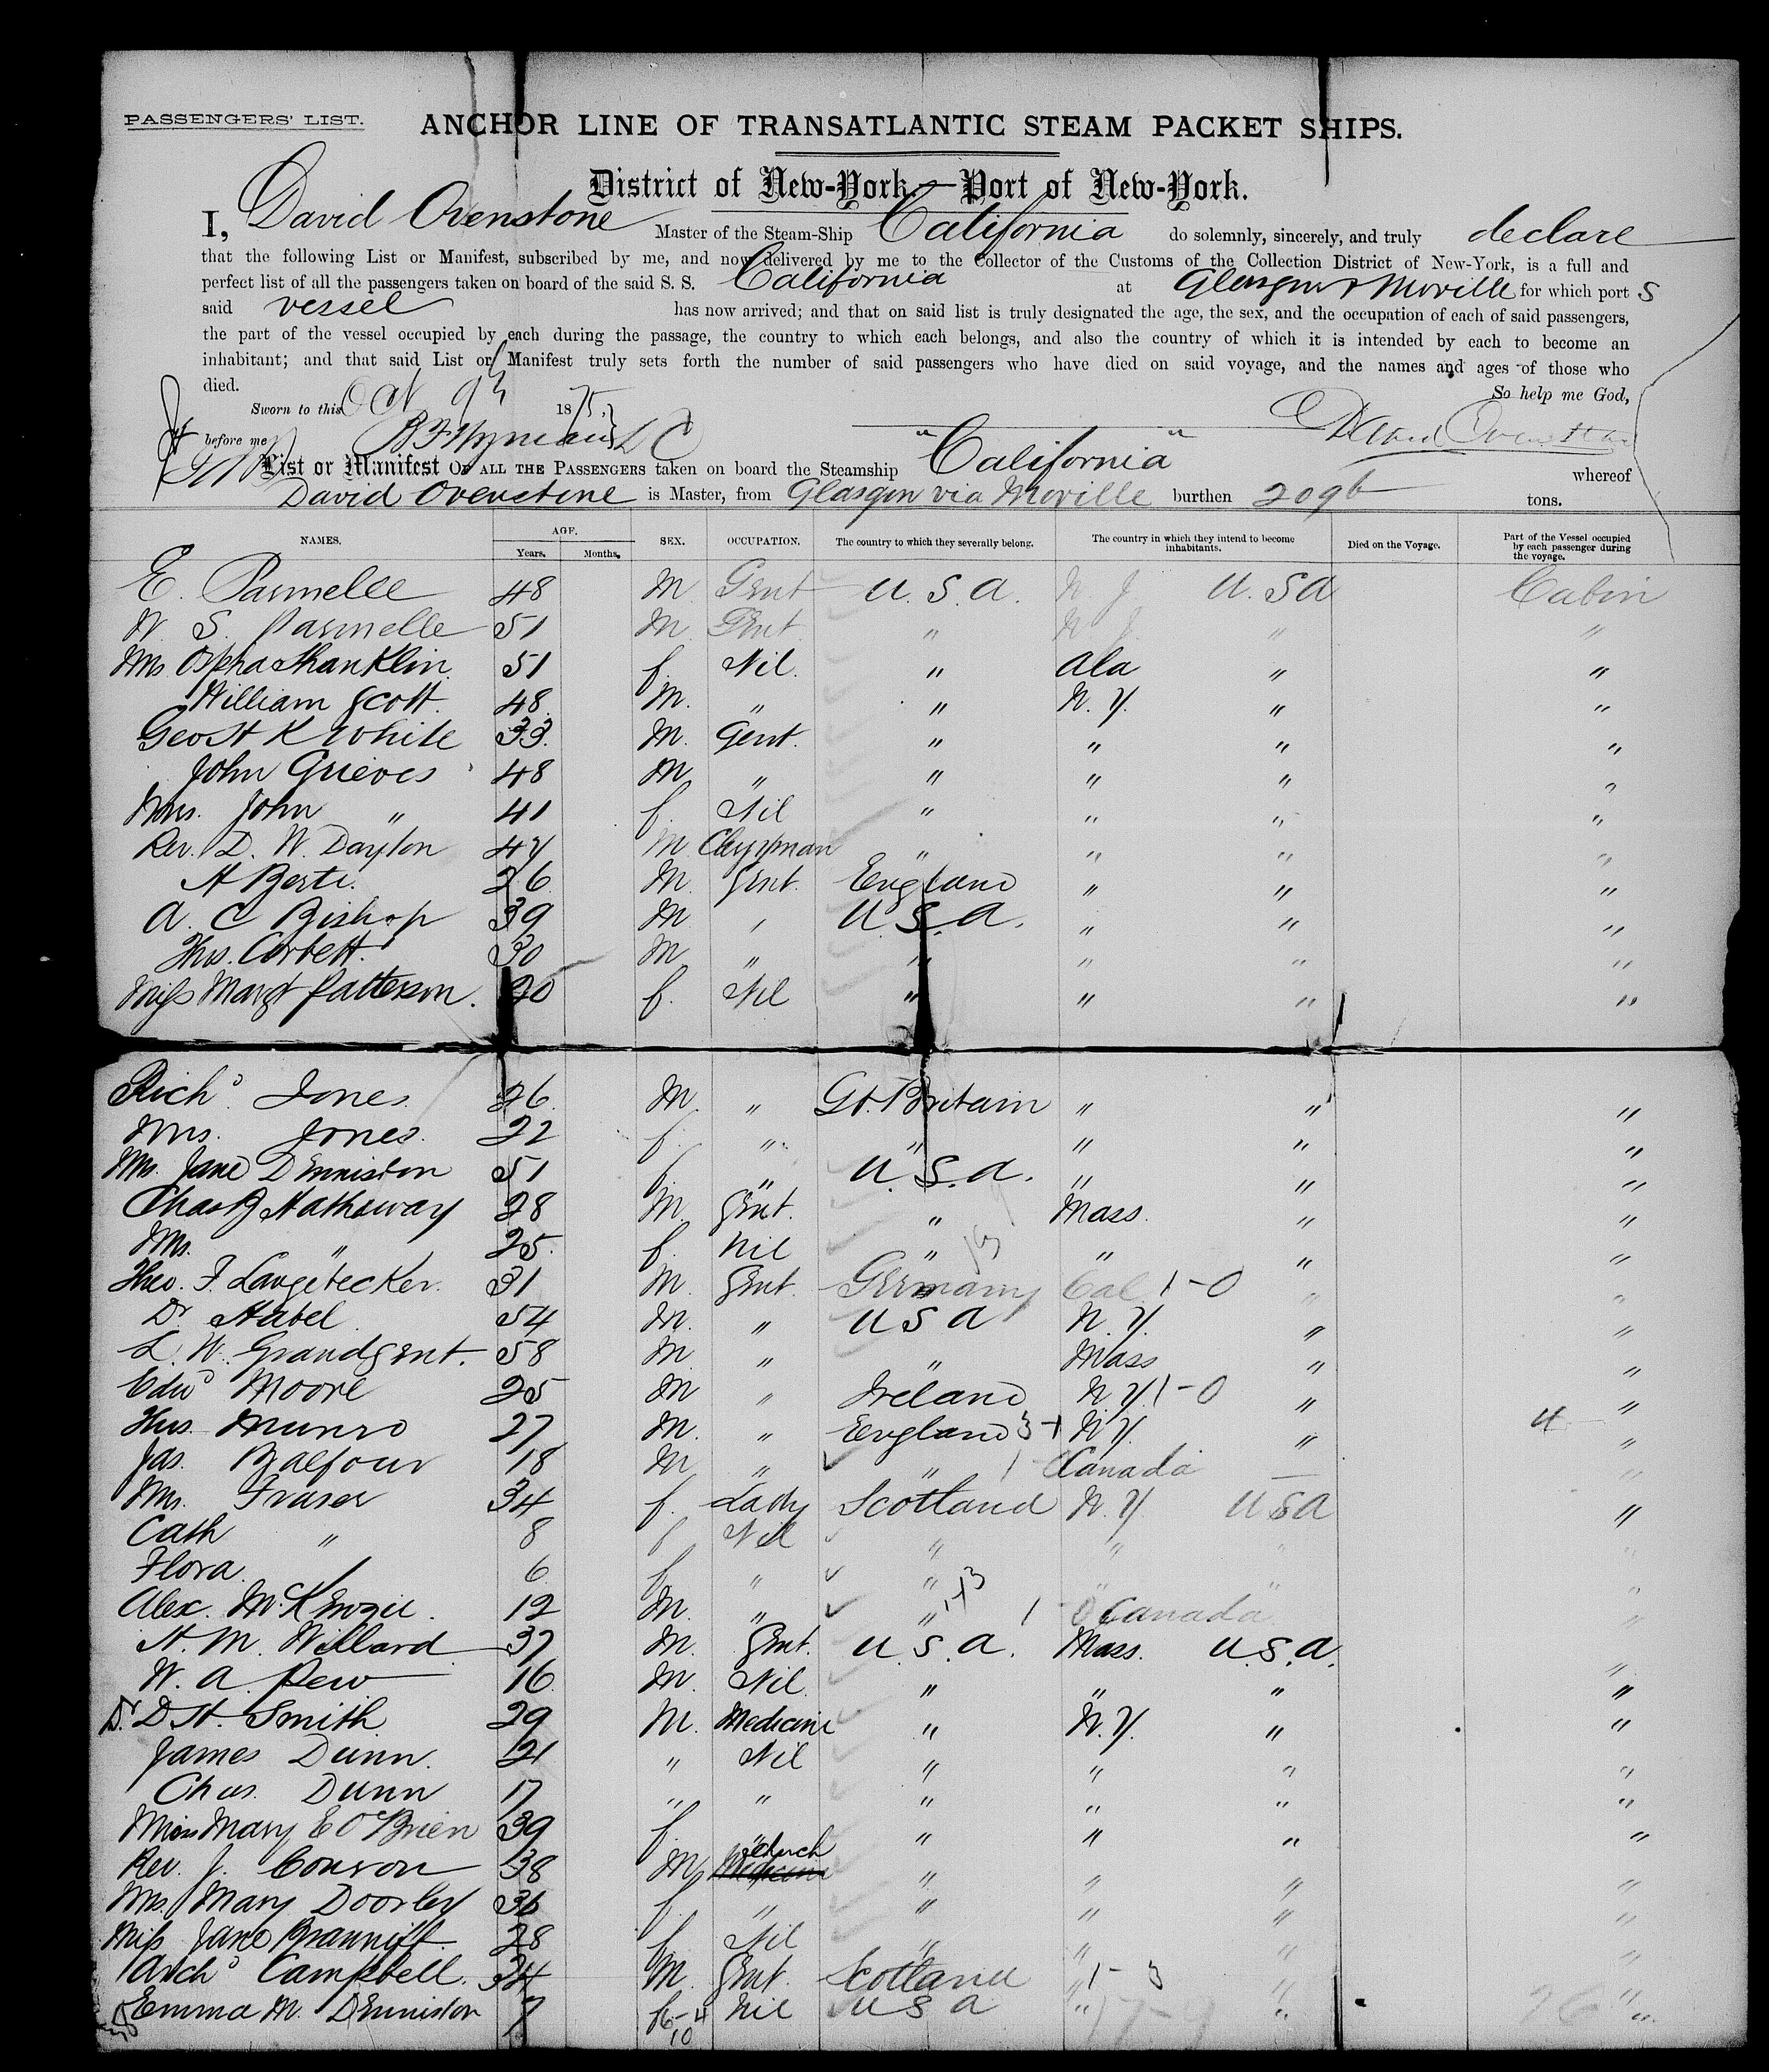 PASSENGERS' LIST.
ANCHOR LINE OF TRANSATLANTIC STEAM PACKET SHIPS.
District of New-York—Port of New-York.
I, David Ovenstone Master of the Steam-Ship California do solemnly, sincerely, and truly declare
that the following List or Manifest, subscribed by me, and now delivered by me to the Collector of the Customs of the Collection District of New-York, is a full and
perfect list of all the passengers taken on board of the said S. S. California at Glasgow & Moville for which port s
said vessel has now arrived; and that on said list is truly designated the age, the sex, and the occupation of each of said passengers,
the part of the vessel occupied by each during the passage, the country to which each belongs, and also the country of which it is intended by each to become an
inhabitant; and that said List or Manifest truly sets forth the number of said passengers who have died on said voyage, and the names and ages of those who
died. So help me God,
Sworn to this Oct 9th 1875,
before me David Ovenstone
List or Manifest OF ALL THE PASSENGERS taken on board the Steamship "California" whereof
David Ovenstone is Master, from Glasgow via Moville burthen 2096 tons.
NAMES. AGE. Years. Months. SEX. OCCUPATION. The country to which they severally belong. The country in which they intend to become inhabitants. Died on the Voyage. Part of the Vessel occupied by each passenger during the voyage.
E. Parmelle 48 M Gent U.S.A. N.J. U.SA Cabin
W S. Parmelle 51 M Gent. " N.J. " "
Mrs Shanklin 51 f. Nil. " Ala " "
William Scott. 48. M. " " N.Y. " "
Geo H K White 33. M. Gent. " " " "
John Grieves 48 M " " " " "
Mrs. John " 41 f. Nil " " " "
Rev. D. W. Dayton 47 M Clergyman " " " "
A Berti. 26 M. Gent. England " " "
A. C Bishop 39 M " U.S.A. " " "
Thos. Corbett. 30 M " " " " "
Miss Margt Patterson. 20 f. Nil " " " "
Richd. Jones. 26. M. " Gt. Britain " " "
Mrs. Jones. 22 f. " " " " "
Mrs. Jane Denniston 51 f. " U.S.A. " " "
Chas B Hathaway 28 M. Gent. " Mass. " "
Mrs. " 25. f. Nil " " " "
Theo. F. Langebecker. 31 M. Gent. Germany Cal. 1-0 " "
Dr Habel 54 M. " U S A N.Y. " "
L. W. Grandgent. 58 M " " Mass " "
Edwd Moore 25 M " Ireland N.Y. 1-0 " "
Thos. Munro 27 M. " England 3-1 N.Y. " 4 "
Jas. Balfour 18 M " " 1 Canada — "
Mrs. Fraser 34 f. Lady Scotland N.Y. USA "
Cath " 8 f Nil " " " "
Flora " 6 f " " " " "
Alex. McKenzie. 12 M. " " 1-0 Canada "
H. M. Willard 37 M. Gent. U.S.A. Mass. U.S.A.
W. A. Pew 16 M. Nil. " " " "
Dr. D H. Smith 29 M. Medicine " N.Y. " "
James Dunn. 21 " Nil " " " "
Chas. Dunn 17 " " " " " "
Miss Mary E O'Brien 39 f. " " " " "
Rev. J. Conron 38 M. Church " " " "
Mrs. Mary Doorley 36 f. " " " " "
Miss Jane Branniff. 28 f Nil " " " "
Archd Campbell. 34 M. Gent. Scotland " 1-3 " "
Emma M. Denniston 7 f. Nil U S A " " "